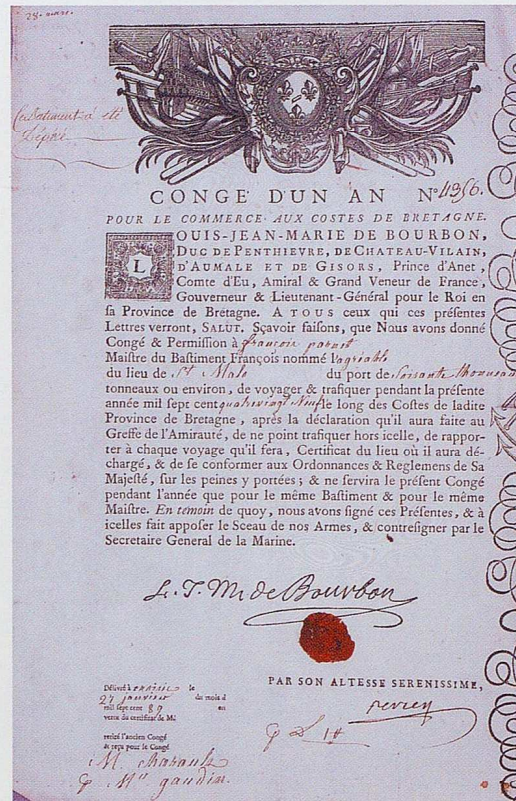 28. mars.
ce Batiment a été
CONGE' D'UN AN N° 4356.
POUR LE COMMERCE AUX COSTES DE BRETAGNE.
LOUIS-JEAN-MARIE DE BOURBON,
DUC DE PENTHIEVRE, DE CHATEAU-VILAIN,
D'AUMALE ET DE GISORS, Prince d'Anet,
Comte d'Eu, Amiral & Grand Veneur de France,
Gouverneur & Lieutenant-Général pour le Roi en
sa Province de Bretagne. A TOUS ceux qui ces présentes
Lettres verront, SALUT. Sçavoir faisons, que Nous avons donné
Congé & Permission à françois
Maistre du Bastiment François nommé l'agréable
du lieu de St Malo du port de soixante
tonneaux ou environ, de voyager & trafiquer pendant la présente
année mil sept cent quatrevingt Neuf le long des Costes de ladite
Province de Bretagne, après la déclaration qu'il aura faite au
Greffe de l'Amirauté, de ne point trafiquer hors icelle, de rappor-
ter à chaque voyage qu'il fera, Certificat du lieu où il aura dé-
chargé, & de se conformer aux Ordonnances & Reglemens de Sa
Majesté, sur les peines y portées; & ne servira le présent Congé
pendant l'année que pour le même Bastiment & pour le même
Maistre. En témoin de quoy, nous avons signé ces Présentes, & à
icelles fait apposer le Sceau de nos Armes, & contresigner par le
Secretaire General de la Marine.
L. J. M. de Bourbon
PAR SON ALTESSE SERENISSIME,
Délivré à le
27 janvier du mois d
mil sept cent 89 en
vertu du certificat de M.
retiré l'ancien Congé
& reçu pour le Congé
M.
gaudin.